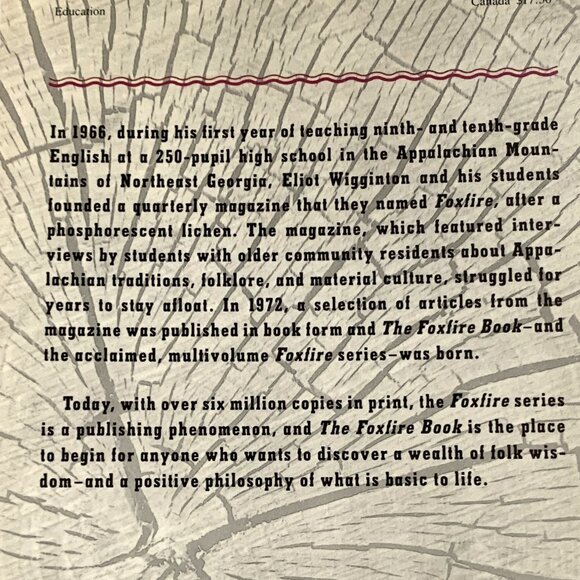 Education
Canada $17.50
In 1966, during his first year of teaching ninth- and tenth-grade
English at a 250-pupil high school in the Appalachian Moun-
tains of Northeast Georgia, Eliot Wigginton and his students
founded a quarterly magazine that they named Foxfire, after a
phosphorescent lichen. The magazine, which featured inter-
views by students with older community residents about Appa-
lachian traditions, folklore, and material culture, struggled for
years to stay afloat. In 1972, a selection of articles from the
magazine was published in book form and The Foxfire Book—and
the acclaimed, multivolume Foxfire series—was born.
Today, with over six million copies in print, the Foxfire series
is a publishing phenomenon, and The Foxfire Book is the place
to begin for anyone who wants to discover a wealth of folk wis-
dom—and a positive philosophy of what is basic to life.